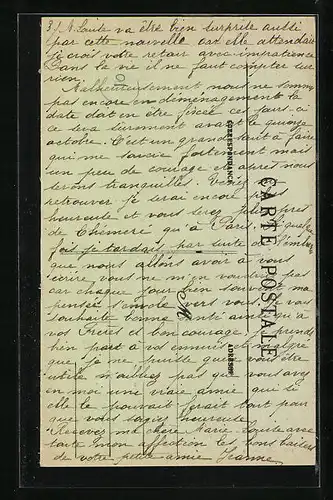 3/ M. Laute va être bien surprise aussi
par cette nouvelle car elle attendait
je crois votre retour avec impatience
Dans la vie il ne faut compter sur
rien.
Malheureusement nous ne sommes
pas encore en déménagement la
date doit en être fixée ces jours-ci
ce sera sûrement avant le quinze
octobre. C'est un grand saut à faire
qui me soucie fortement mais
un peu de courage et après nous
serons tranquilles. Venez
retrouver je serai encore plus
heureuse et vous serez plus près
de Chimeré qu'à Paris. Si quelque
fois je tardais par suite de l'ennui
que nous allons avoir à vous
écrire vous ne m'en voudrez pas
car chaque jour bien souvent ma
pensée s'envole vers vous. Je vous
souhaite bonne santé ainsi qu'à
vos Frères et bon courage. Je prends
bien part à vos ennuis et malgré
que je ne puisse guère vous être
utile n'oubliez pas que vous avez
en moi une vraie amie qui si
elle le pouvait ferait tout pour
que vous soyez heureuse.
Recevez ma chère Marie-Louise avec
toute mon affection les bons baisers
de votre petite amie Jeanne
CARTE POSTALE
CORRESPONDANCE
ADRESSE
M